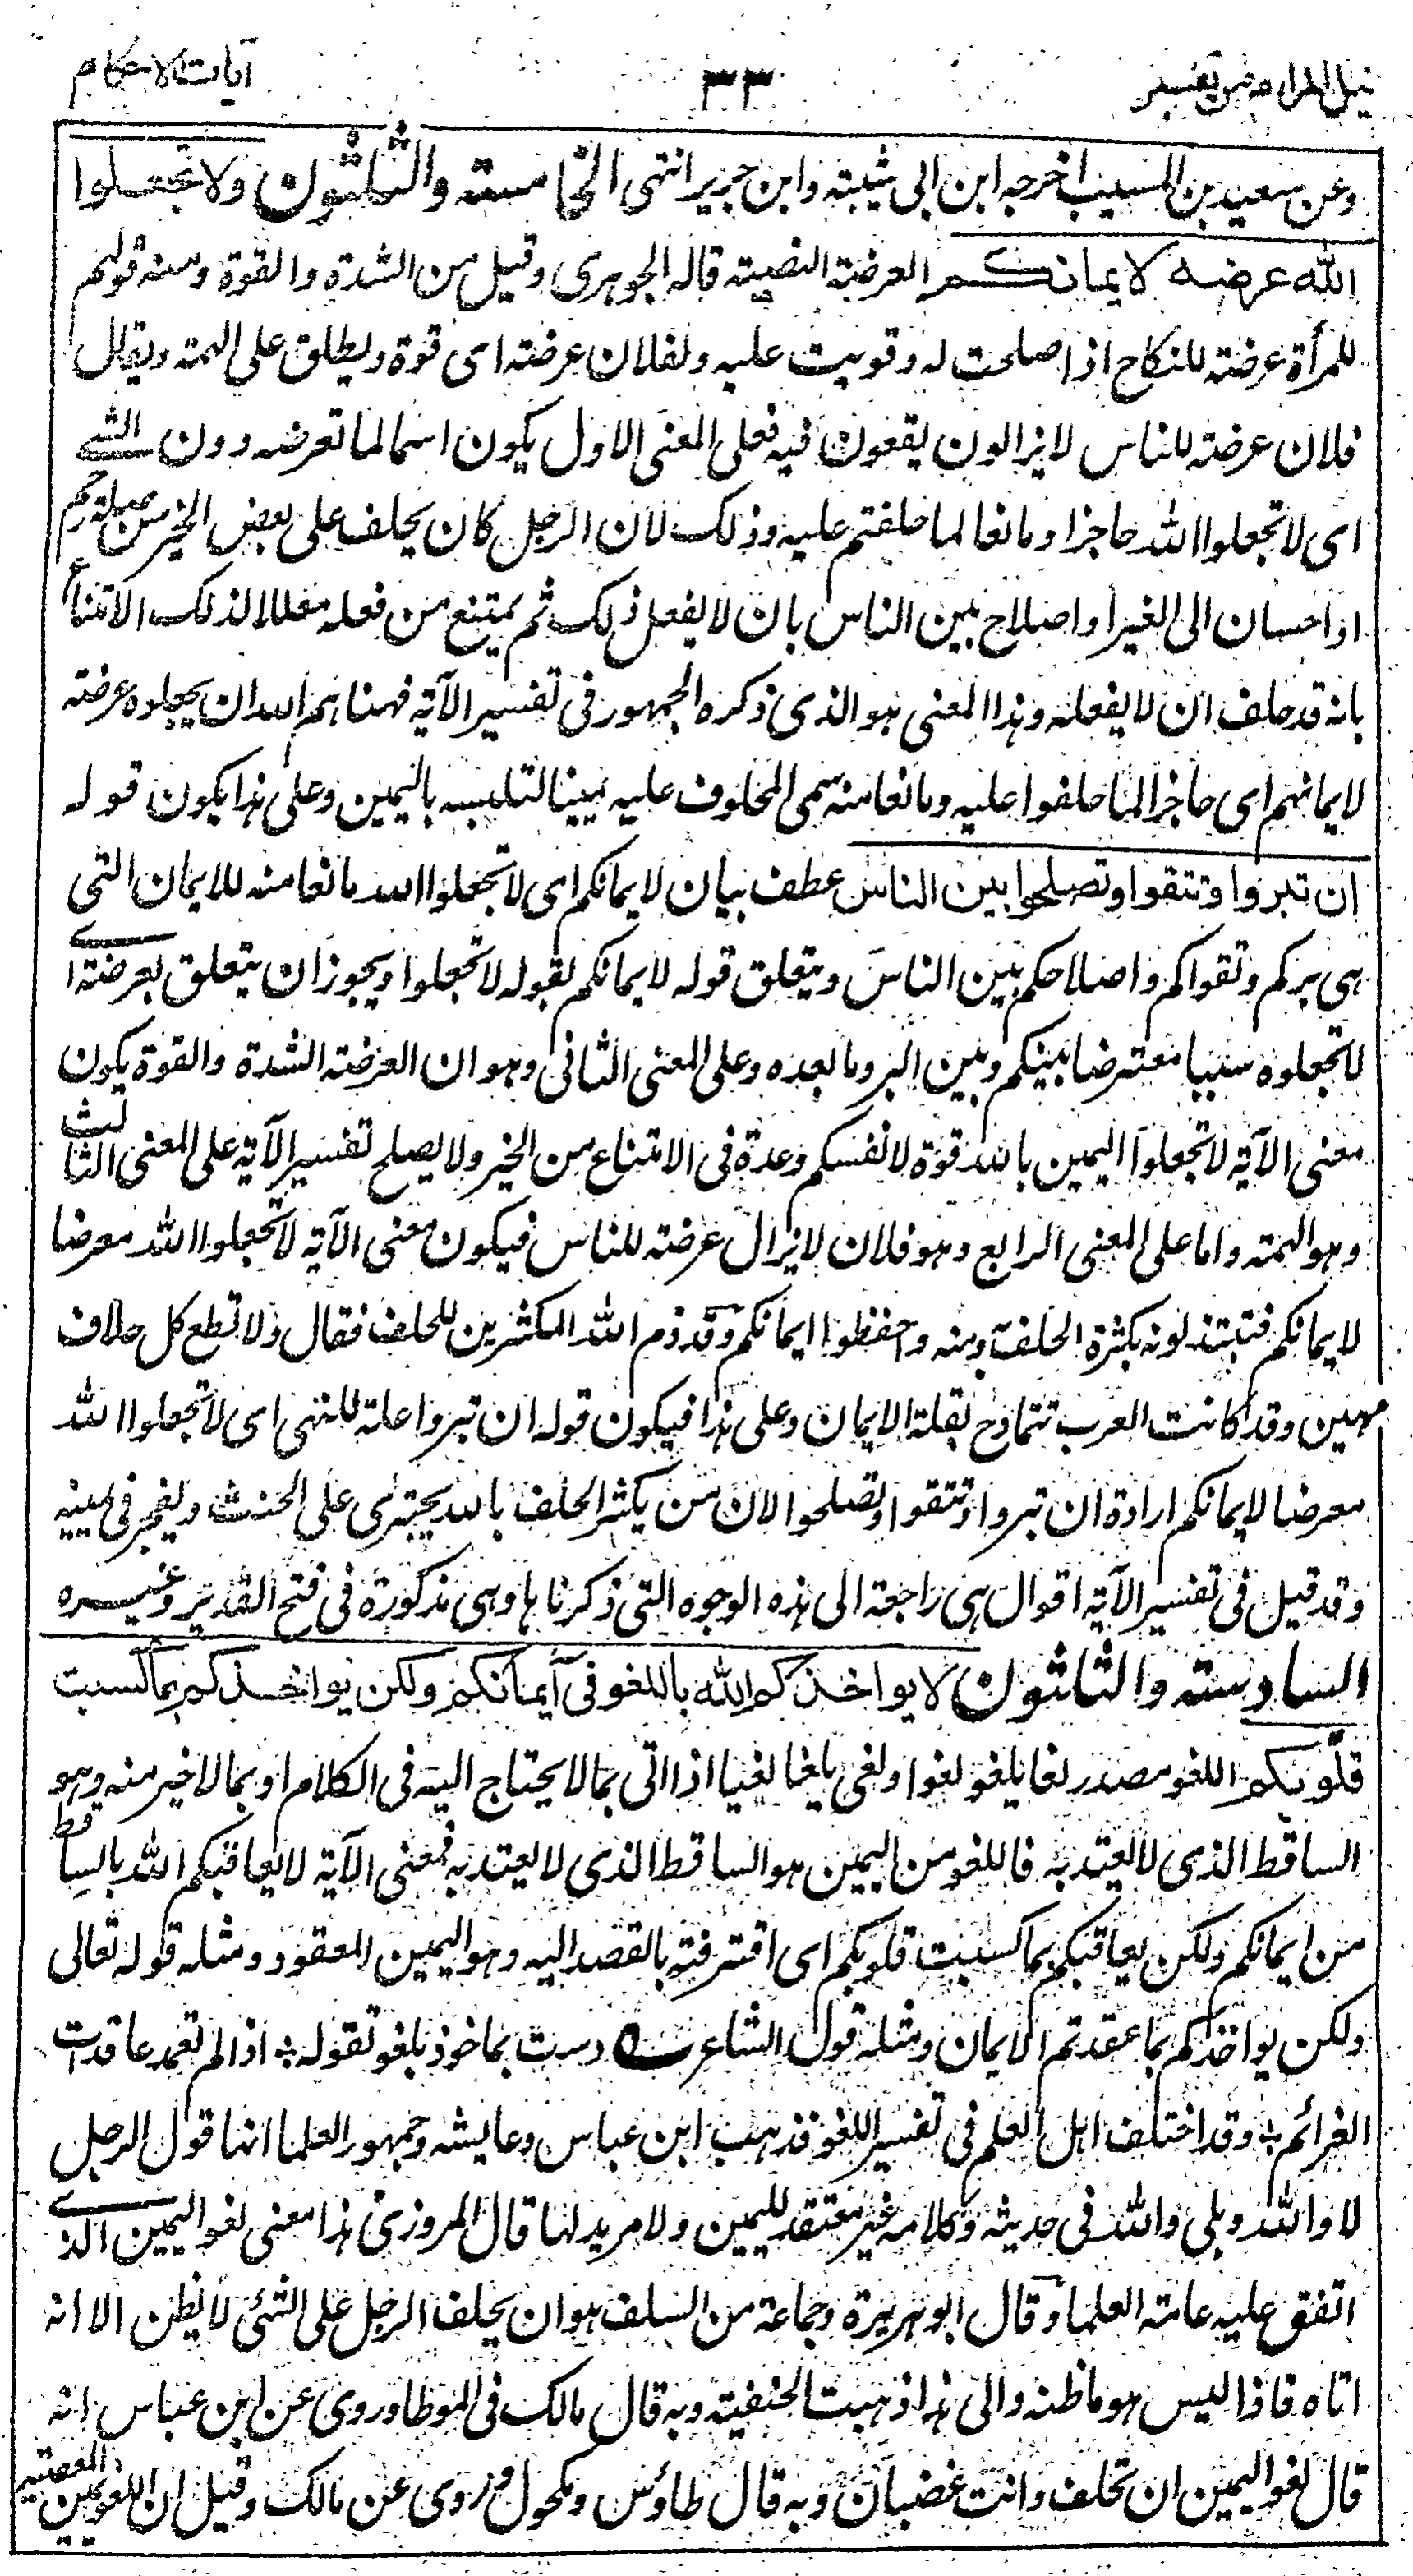 نيل المرام من تفسير ٣٣ آيات الاحكام
وعن سعيد بن المسيب اخرجه ابن ابى شيبة وابن جرير انتهى الخامسة والثلثون ولا تجعلوا
الله عرضة لايمانكم العرضة النصبة قاله الجوهرى وقيل من الشدة والقوة ومنه قولهم
للمرأة عرضة للنكاح اذا صلحت له وقويت عليه ولفلان عرضة اى قوة ويطلق على الهمة ويقال
فلان عرضة للناس لا يزالون يقعون فيه فعلى المعنى الاول يكون اسما لما تعرضه دون الشئ
اى لا تجعلوا الله حاجزا ومانعا لما حلفتم عليه وذلك لان الرجل كان يحلف على بعض الخير من صلة رحم
او احسان الى الغير او اصلاح بين الناس بان لا يفعل ذلك ثم يمتنع من فعله معللا لذلك الامتناع
بانه قد حلف ان لا يفعله وهذا المعنى هو الذى ذكره الجمهور فى تفسير الآية فهناهم الله ان يجعلوه عرضة
لايمانهم اى حاجزا لما حلفوا عليه ومانعا منه سمى المحلوف عليه يمينا لتلبسه باليمين وعلى هذا يكون قوله
ان تبروا وتتقوا وتصلحوا بين الناس عطف بيان لايمانكم اى لا تجعلوا الله مانعا منه للايمان التى
هى بركم وتقواكم واصلاحكم بين الناس ويتعلق قوله لايمانكم بقوله لا تجعلوا ويجوز ان يتعلق بعرضة اى
لا تجعلوه سببا معترضا بينكم وبين البر وما بعده وعلى المعنى الثانى وهو ان العرضة الشدة والقوة يكون
معنى الآية لا تجعلوا اليمين بالله قوة لانفسكم وعدة فى الامتناع من الخير ولا يصلح تفسير الآية على المعنى الثالث
وهو الهمة واما على المعنى الرابع وهو فلان لا يزال عرضة للناس فيكون معنى الآية لا تجعلوا الله معرضا
لايمانكم فتبتذلونه بكثرة الحلف ومنه واحفظوا ايمانكم وقد ذم الله المكثرين للحلف فقال ولا تطع كل حلاف
مهين وقد كانت العرب تتمادح بقلة الايمان وعلى هذا فيكون قوله ان تبروا علة للنهى اى لا تجعلوا الله
معرضا لايمانكم ارادة ان تبروا وتتقوا وتصلحوا لان من يكثر الحلف بالله يجترى على الحنث ويفجر فى يمينه
وقد قيل فى تفسير الآية اقوال هى راجعة الى هذه الوجوه التى ذكرناها وهى مذكورة فى فتح القدير وغيره
السادسة والثلثون لا يواخذكم الله باللغو فى آيمانكم ولكن يواخذكم بما كسبت
قلوبكم اللغو مصدر لغا يلغو لغوا ولغى يلغا لغيا اذا اتى بما لا يحتاج اليه فى الكلام او بما لا خير منه وهو
الساقط الذى لا يعتد به فاللغو من اليمين هو الساقط الذى لا يعتد به فمعنى الآية لا يعاقبكم الله بالساقط
من ايمانكم ولكن يعاقبكم بما كسبت قلوبكم اى اقترفته بالقصد اليه وهو اليمين المعقود ومثله قوله تعالى
ولكن يواخذكم بما عقدتم الايمان ومثله قول الشاعر ولست بماخوذ بلغو تقوله اذا لم تعمد عاقدات
العزائم وقد اختلف اهل العلم فى تفسير اللغو فذهب ابن عباس وعايشه وجمهور العلما انها قول الرجل
لا والله وبلى والله فى حديثه وكلامه غير معتقد لليمين ولا مريد لها قال المروزى هذا معنى لغو اليمين الذى
اتفق عليه عامة العلما وقال ابو هريرة وجماعة من السلف هو ان يحلف الرجل على الشئ لا يظن الا انه
اتاه فاذا ليس هو ما ظنه والى هذا ذهبت الحنفية وبه قال مالك فى الموطا وروى عن ابن عباس انه
قال لغو اليمين ان تحلف وانت غضبان وبه قال طاؤس ومكحول وروى عن مالك وقيل ان اللغو يمين المعصية